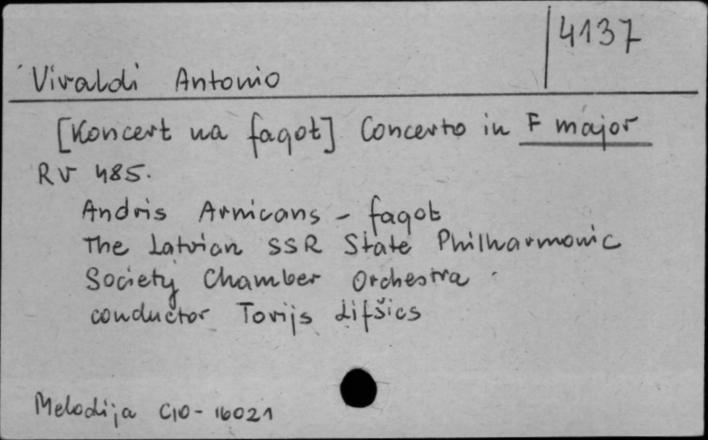 4137
Vivaldi Antonio
[Koncert na fagot] Concerto in F major
RV 485.
Andris Arnicans - fagot
The Latvian SSR State Philharmonic
Society Chamber Orchestra
conductor Torijs Lifšics
Melodija C10-16021